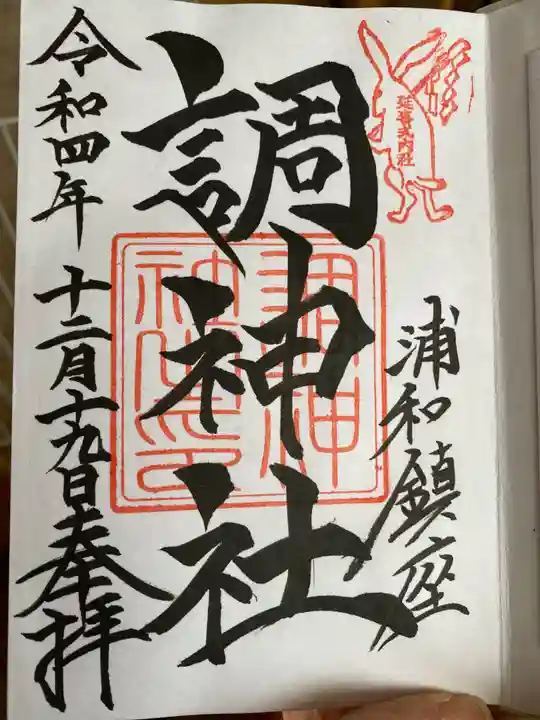 延喜式内社
浦和鎮座
調神社
令和四年十二月十九日奉拝